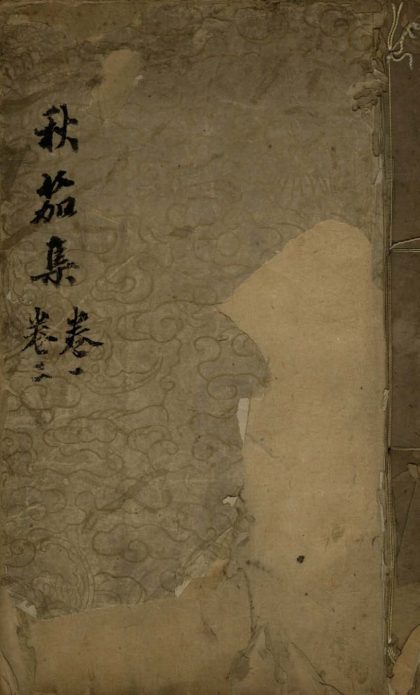 秋笳集
卷一
卷二